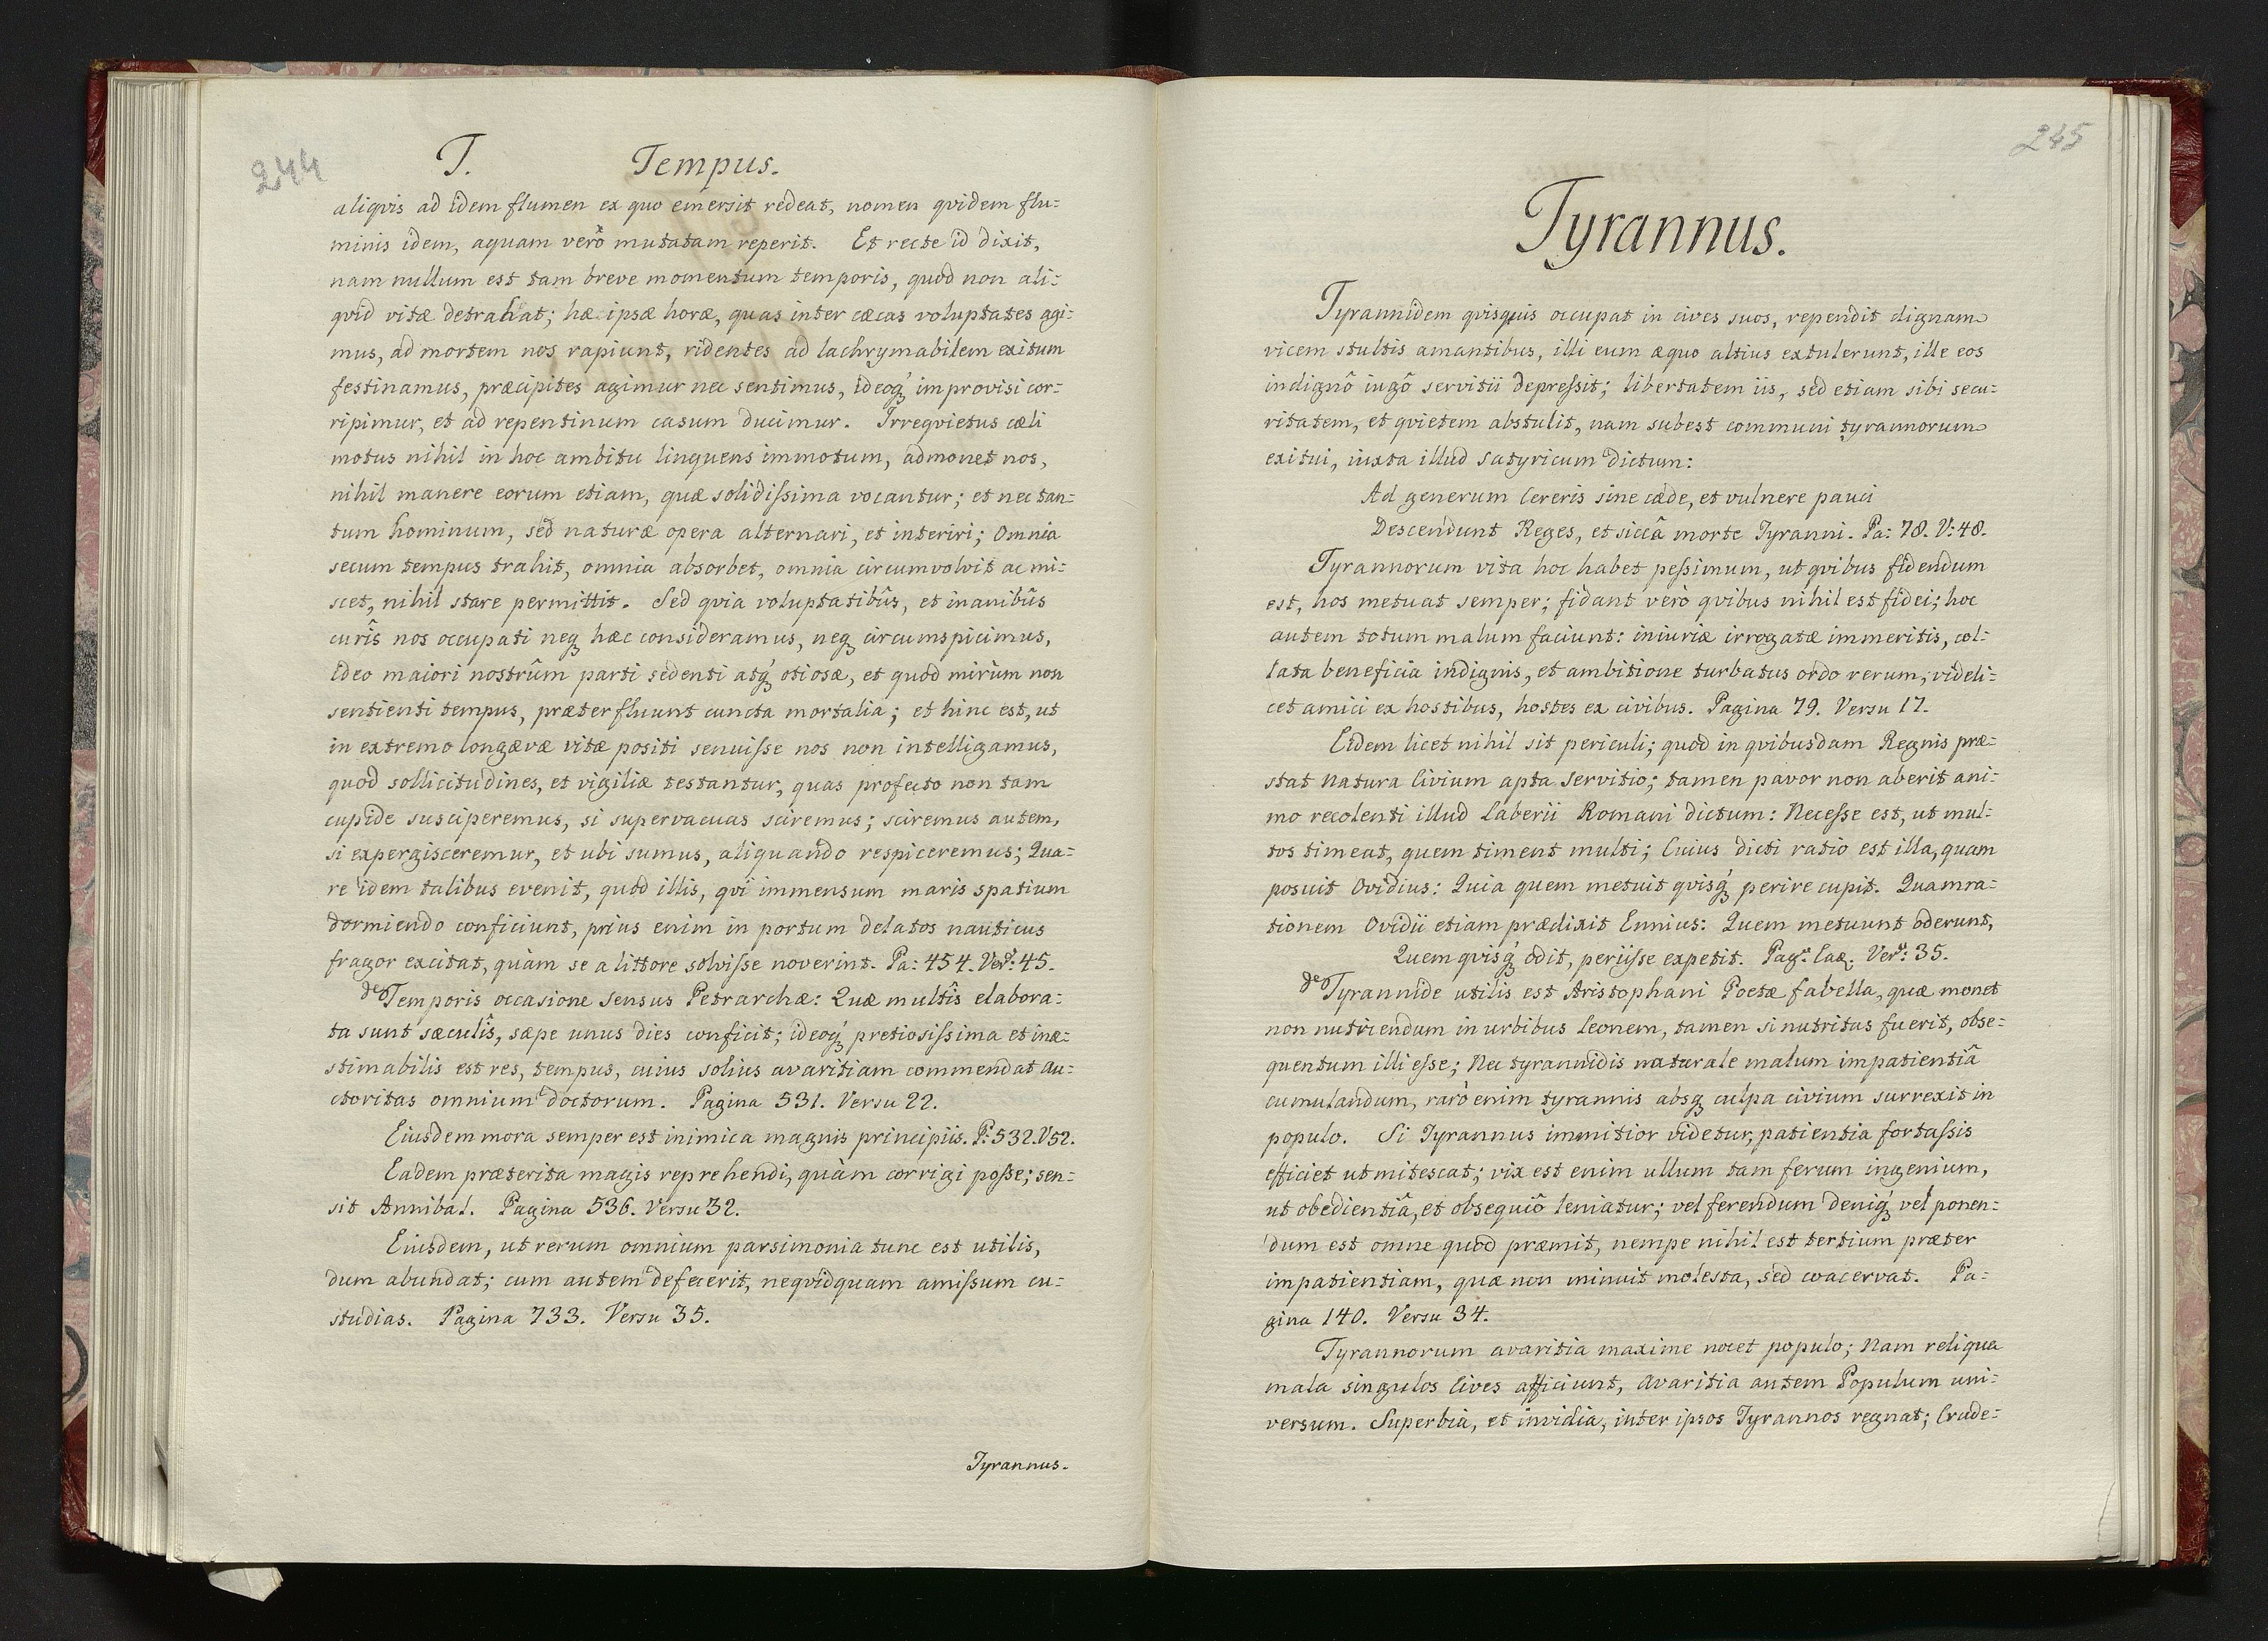 244
T. Tempus.
aliqvis ad idem flumen ex quo emersit redeat, nomen qvidem flu=
minis idem, aquam verò mutatam reperit. Et recte id dixit,
nam nullum est tam breve momentum temporis, quod non ali=
qvid vitæ detrahat; hæ ipsæ horæ, quas inter cæcas voluptates agi=
mus, ad mortem nos rapiunt, ridentes ad lachrymabilem exitum
festinamus, præcipites agimur nec sentimus, ideoq́ improvisi cor=
ripimur, et ad repentinum casum ducimur. Irreqvietus cæli
motus nihil in hoc ambitu linquens immotum, admonet nos,
nihil manere eorum etiam, quæ solidiſsima vocantur; et nec tan=
tum hominum, sed naturæ opera alternari, et interiri; Omnia
secum tempus trahit, omnia absorbet, omnia circumvolvit ac mi=
scet, nihil stare permittit. Sed qvia voluptatibûs, et inanibûs
curîs nos occupati neq hæc consideramus, neq circumspicimus,
Ideo maiori nostrûm parti sedenti atq́ otiosæ, et quod mirùm non
sentienti tempus, præterfluunt cuncta mortalia; et hinc est, ut
in extremo longævæ vitæ positi senuiſse nos non intelligamus,
quod sollicitudines, et vigiliæ testantur, quas profecto non tam
cupide susciperemus, si supervacuas sciremus; sciremus autem,
si expergisceremur, et ubi sumus, aliquando respiceremus; Qua=
re idem talibus evenit, quod illis, qvi immensum maris spatium
dormiendo conficiunt, prius enim in portum delatos nauticus
fragor excitat, quàm se a littore solviſse noverint. Pa: 454. Verˢ: 45.
de Temporis occasione sensus Petrarchæ: Quæ multîs elabora=
ta sunt sæculîs, sæpe unus dies conficit; ideoq́ pretiosiſsima et inæ=
stimabilis est res, tempus, cuius solius avaritiam commendat au=
ctoritas omnium doctorum. Pagina 531. Versu 22.
Eiusdem mora semper est inimica magnis principiis. P: 532. V 52.
Eadem præterita magis reprehendi, quàm corrigi poſse; sen=
sit Annibal. Pagina 536. Versu 32.
Eiusdem, ut rerum omnium parsimonia tunc est utilis,
dum abundat; cum autem defecerit, neqvidquam amiſsum cu=
studias. Pagina 733. Versu 35.
Tyrannus.
245
Tyrannus.
Tyrannidem qvisquis occupat in cives suos, rependit dignam
vicem stultis amantibus, illi eum æquo altius extulerunt, ille eos
indignô iugô servitii depreſsit; libertatem iis, sed etiam sibi secu=
ritatem, et qvietem abstulit, nam subest communi tyrannorum
exitui, iuxta illud satyricum dictum:
Ad generum Cereris sine cæde, et vulnere pauci
Descendunt Reges, et siccâ morte Tyranni. Pa: 78. V: 48.
Tyrannorum vita hoc habet peſsimum, ut qvibus fidendum
est, hos metuat semper; fidant verò qvibus nihil est fidei; hoc
autem totum malum faciunt: iniuriæ irrogatæ immeritis, col=
lata beneficia indignis, et ambitione turbatus ordo rerum, videli=
cet amici ex hostibus, hostes ex civibus. Pagina 79. Versu 17.
Eidem licet nihil sit periculi; quod in qvibusdam Regnis præ=
stat Natura Civium apta servitio; tamen pavor non aberit ani=
mo recolenti illud Laberii Romani dictum: Neceſse est, ut mul=
tos timeat, quem timent multi; Cuius dicti ratio est illa, quam
posuit Ovidius: Quia quem metuit qvisq́ perire cupit. Quam ra=
tionem Ovidii etiam prædixit Ennius: Quem metuunt oderunt,
Quem qvisq́ odit, periiſse expetit. Pagᵃ: eaẽ. Verˢ: 35.
de Tyrannide utilis est Aristophani Poetæ fabella, quæ monet
non nutriendum in urbibus leonem, tamen si nutritus fuerit, obse=
quentum illi eſse; Nec tyrannidis naturale malum impatientiâ
cumulandum, rarò enim tyrannis absq culpa civium surrexit in
populo. Si Tyrannus immitior videtur, patientia fortaſsis
efficiet ut mitescat; vix est enim ullum tam ferum ingenium,
ut obedientiâ, et obsequiô leniatur; vel ferendum deniq́ vel ponen=
dum est omne quod præmit, nempe nihil est tertium præter
impatientiam, quæ non minuit molesta, sed coacervat. Pa=
gina 140. Versu 34.
Tyrannorum avaritia maxime nocet populo; Nam reliqua
mala singulos Cives afficiunt, Avaritia autem Populum uni=
versum. Superbia, et invidia, inter ipsos Tyrannos regnat; Crude=